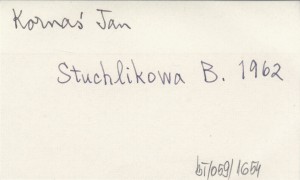 Kornaś Jan
Stuchlikowa B. 1962
bT/059/1654